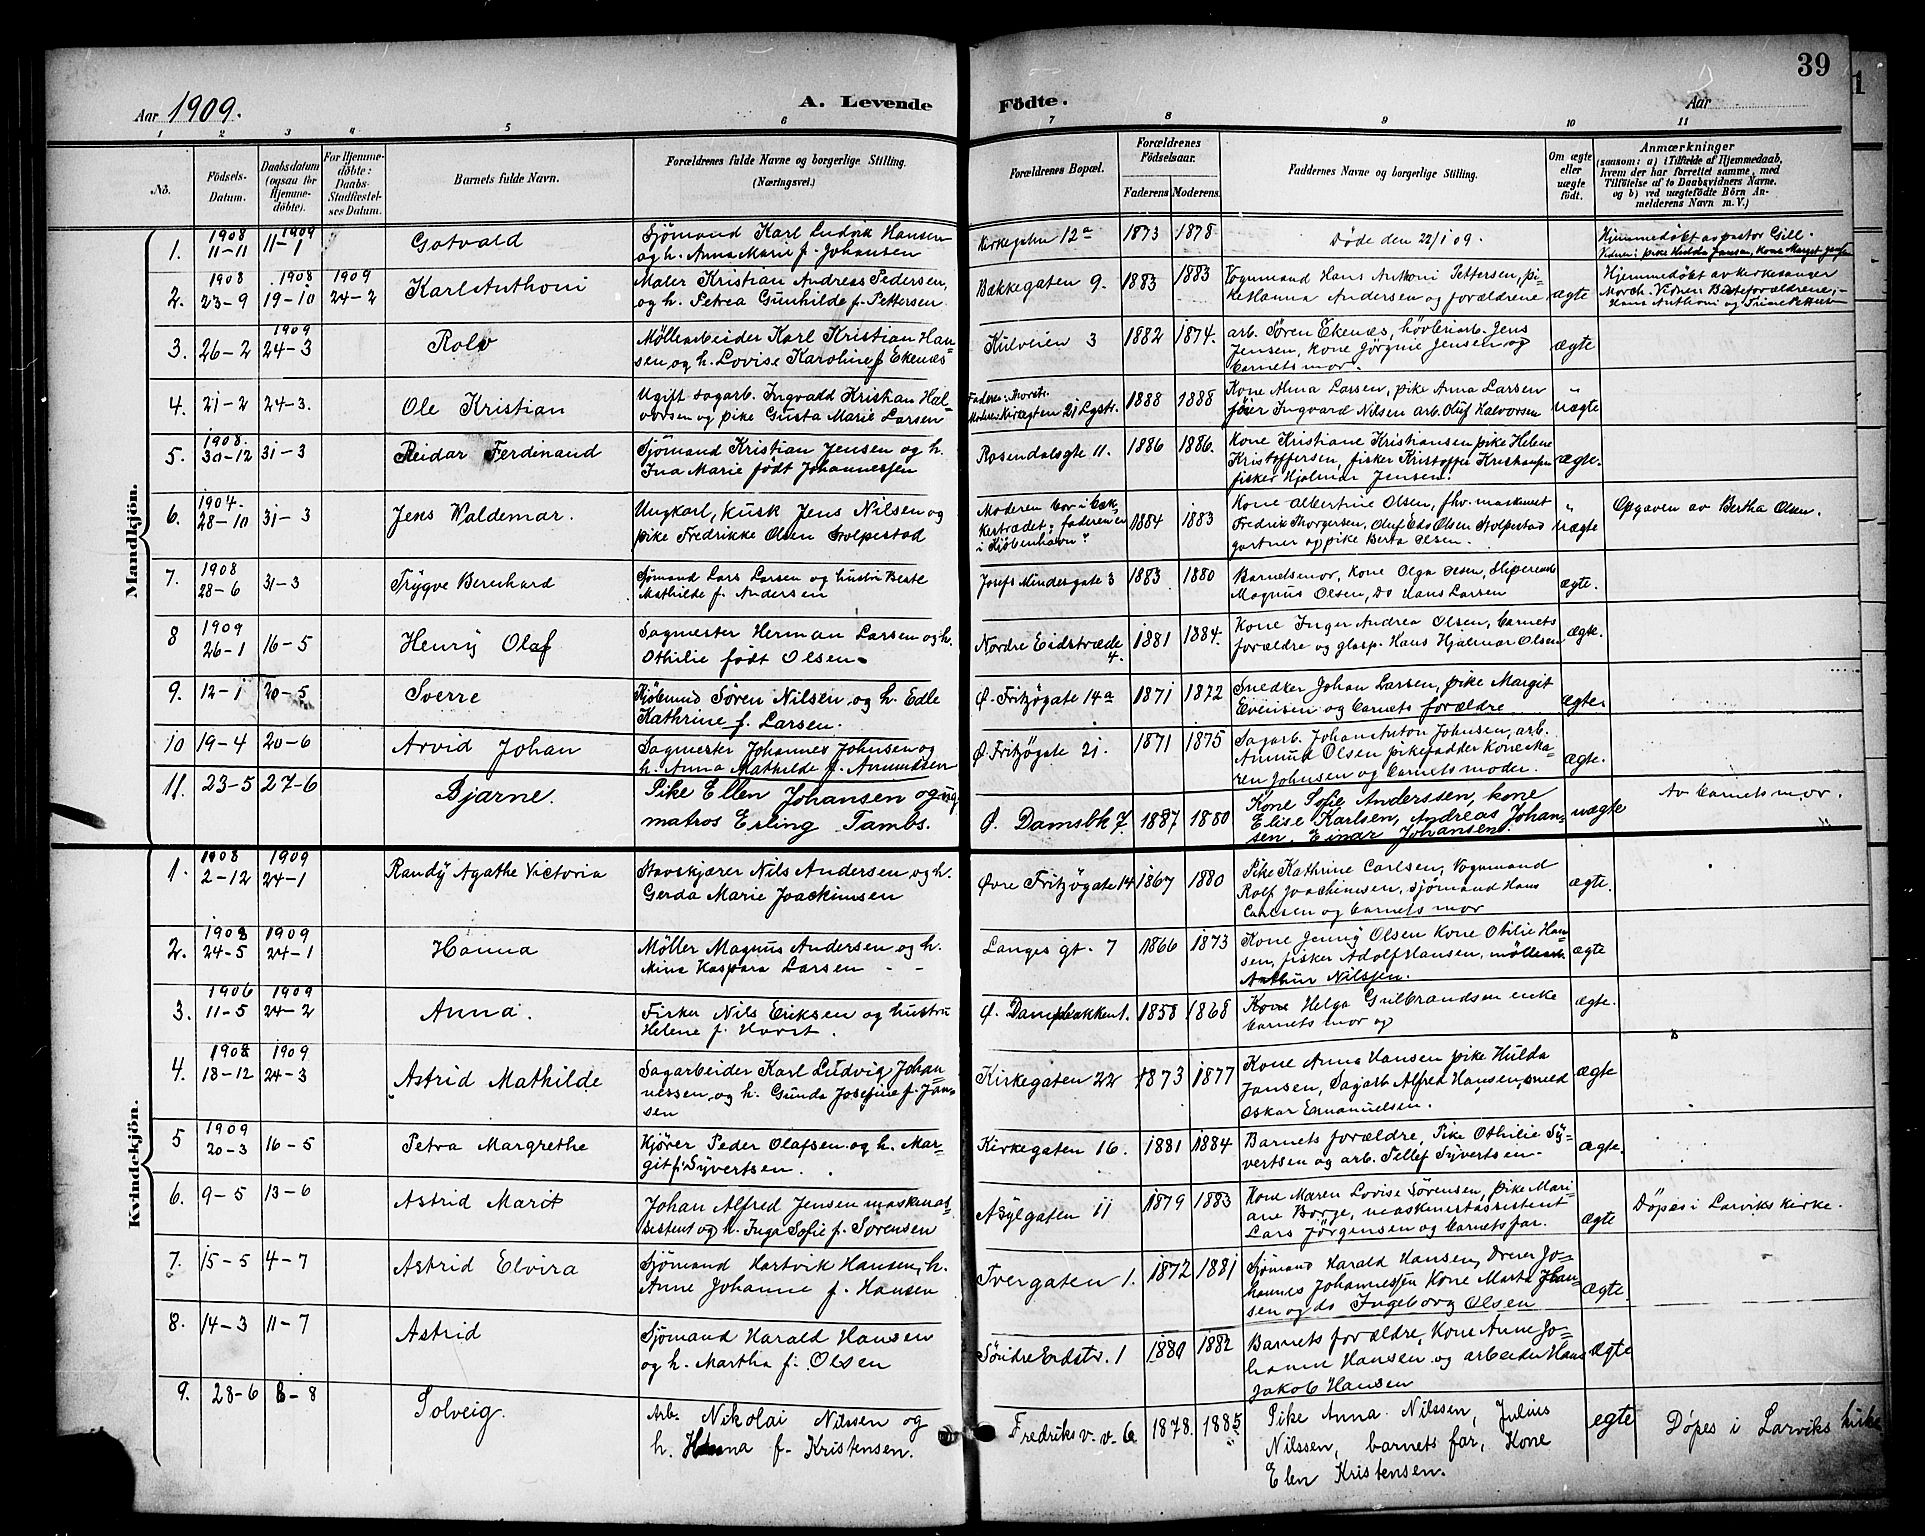 39
Aar 1909. A. Levende Födte. Aar
1 2 3 4 5 6 7 8 9 10 11
No. Födsels-Datum. Daabsdatum (ogsaa for Hjemme-döbte). For Hjemme-döbte: Daabs-Stadfæstel-ses Datum. Barnets fulde Navn. Forældrenes fulde Navne og borgerlige Stilling. (Næringsvei.) Forældrenes Bopæl. Forældrenes Födselsaar. Faderens. Moderens. Faddernes Navne og borgerlige Stilling. Om ægte eller uægte født. Anmærkninger
(saasom: a) i Tilfælde af Hjemmedaab,
hvem der har forrettet samme, med
Tilföielse af to Daabsvidners Navne.
og b) ved uægtefödte Börn An-
melderens Navn m. V.)
Mandkjön.
1. 1908 11-11 1909 11-1 Gotvald Sjömand Karl Ludvik Hansen
og h. Anna Marie f. Johansen Kirkegaten 12a 1873 1878 Døde den 22/1 09. Hjemmedøkt av pastor Gill.
Vidner: pike Hulda Jansen, Kone Margit
2. 1908 23-9 1908 19-10 1909 24-2 Karl Anthoni Maler Kristian Andreas Pedersen,
og h. Petrea Gunhilde f. Pettersen Bakkegaten 9. 1883 1883 Vognmand Hans Anthoni Pettersen, pi-
ke Hanna Andersen og forældrene ægte Hjemmedøkt av kirkesanger
Morch. Vidner: Besteforældrene,
Hans Anthoni og Trine Pettersen
3. 26-2 1909 24-3 Rolv Møllearbeider Karl Kristian Han-
sen og h. Lovise Karoline f. Ekenes Kulveien 3 1882 1874. arb. Søren Ekenes, høvleriarb. Jens
Jensen, kone Jörgine Jensen og
barnets mor. ægte
4. 21-2 24-3. Ole Kristian Ugift sagarb. Ingvald Kristian Hal-
vorsen og pike Gusta Marie Larsen 1888 1888 Kone Alma Larsen, pike Anna Larsen
Ingvard Nilsen arb. Oluf Halvorsen uægte
5. 1908. 30-12 31-3 Reidar Ferdinand Sjömand Kristian Jensen og h.
Ina Marie født Johannessen Rosendalsgte 11. 1886 1886. Kone Kristiane Kristiansen pike Helene
Kristoffersen, fisker Kristoffer Kristiansen
fisker Hjalmar Jensen. ægte.
6. 1904. 28-10 31-3 Jens Waldemar. Ungkarl, kusk Jens Nilsen og
pike Fredrikke Olsen Stolpestad Moderen bor i Bæk-
kestrædet; faderen er
i Kjøbenhavn 1884 1883 Kone Albertine Olsen, fhv. maskinist
Fredrik Thorgersen, Oluf Eds Olsen Stolpestad
gartner og pike Berta Olsen. uægte Opgaven av Bertha Olsen.
7. 1908 28-6 31-3 Trygve Bernhard Sjömand Lars Larsen og hustru Beate
Mathilde f. Andersen Josefs Mindesgate 3 1883 1880 Barnets mor, Kone Olga Olsen, Sliperiarb.
Magnus Olsen, Do Hans Larsen ægte.
8 1909 26-1 16-5 Henry Olaf Sagmester Herman Larsen og h.
Othilie født Olsen. Nordre Eidstræde
4. 1881 1884. Kone Inger Andrea Olsen, barnets
forældre og glasp. Hans Hjalmar Olsen ægte.
9. 12-1 20-5 Sverre Kjöbmand Søren Nilsen og h. Edle
Kathrine f. Larsen. Ø. Fritzögate 14a 1871 1872 Snedker Johan Larsen, pike Margit
Evensen og barnets forældre ægte.
10 19-4 20-6 Arvid Johan Sagmester Johannes Johnsen og
h. Anna Mathilde f. Amundsen Ø Fritzögate 21. 1871 1875 Sagarb. Johan Anton Johnsen, arb.
Amund Olsen pikefadder Kone Ma-
ren Johnsen og barnets moder. ægte.
11. 23-5 27-6 Bjarne. Pike Ellen Johansen og ug.
matros Erling Tambs. Ø. Damsbk 7. 1887 1880 Kone Sofie Anderssen, kone
Elise Karlsen, Andreas Johan-
sen, Einar Johansen. uægte Av barnets mor.
Kvindekjön.
1. 1908 2-12 1909 24-1 Randy Agathe Victoria Stavskjærer Nils Andersen og h.
Gerda Marie Joachimsen Øvre Fritzögate 14 1867 1880 Pike Kathrine Carlsen, Vognmand
Rolf Joachimsen, Sjömand Hans
Carlsen og barnets mor ægte.
2. 1908 24-5 1909 24-1 Hanna Möller Magnus Andersen og h.
Mina Kaspara Larsen Langes gt. 7 1866 1873 Kone Jenny Olsen Kone Otilie Han-
sen, fisker Adolf Hansen, møllearb.
Arthur Nilssen. ægte
3. 1906 11-5 1909 24-2 Anna. Fisker Nils Eriksen og hustru
Helene f. Horst. Ø. Damsbakken 1. 1858 1868 Kone Helga Gulbrandsen enke
barnets mor og ægte.
4. 1908 18-12 1909 24-3 Astrid Mathilde Sagarbeider Karl Ludvig Johan-
nessen og h. Gunda Josefine f. Jans-
sen Kirkegaten 22 1873 1877 Kone Anna Hansen pike Hulda
Jansen, Sagarb. Alfred Hansen, smed
Oskar Emanuelsen. ægte
5 1909 20-3 16-5 Petra Margrethe Kjörer Peder Olafsen og h. Mar-
git f. Syvertsen. Kirkegaten 16. 1881 1884 Barnets forældre, Pike Othilie Sy-
vertsen og arb. Tellef Syvertsen ægte.
6. 9-5 13-6 Astrid Marit Johan Alfred Jensen maskinas-
sistent og h. Inga Sofie f. Sørensen Asylgaten 11 1879 1883 Kone Maren Lovise Sørensen, pike Mari-
ane Borge, maskinistassistent
Lars Jörgensen og barnets far. ægte Döpes i Larviks kirke.
7. 15-5 4-7 Astrid Elvira Sjömand Hartvik Hansen, h.
Anne Johanne f. Hansen Tvergaten 1. 1872 1881 Sjömand Harald Hansen, Dreier Jo-
hannes Johannessen Kone Marta Han-
sen og do Ingeborg Olsen ægte.
8. 14-3 11-7 Astrid Sjömand Harald Hansen
og h. Martha f. Olsen Söndre Eidstr. 1 1880 1882 Barnets forældre, Kone Anne Jo-
hanne Hansen og arbeider Hans
Jakob Hansen ægte
9. 28-6 8-8 Solveig. Arb. Nikolai Nilssen og
h. f. Kristensen. Fredriks v. v. 6a 1878. 1885 Pike Anna Nilssen, Julius
Nilssen, barnets far, Kone
Elen Kristensen. ægte Döpes i Larviks kirke